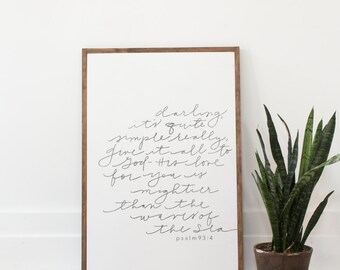 darling,
it's quite
simple really,
give it all to
God - His love
for you is
mightier
than the
waves of
the sea
psalm 93:4